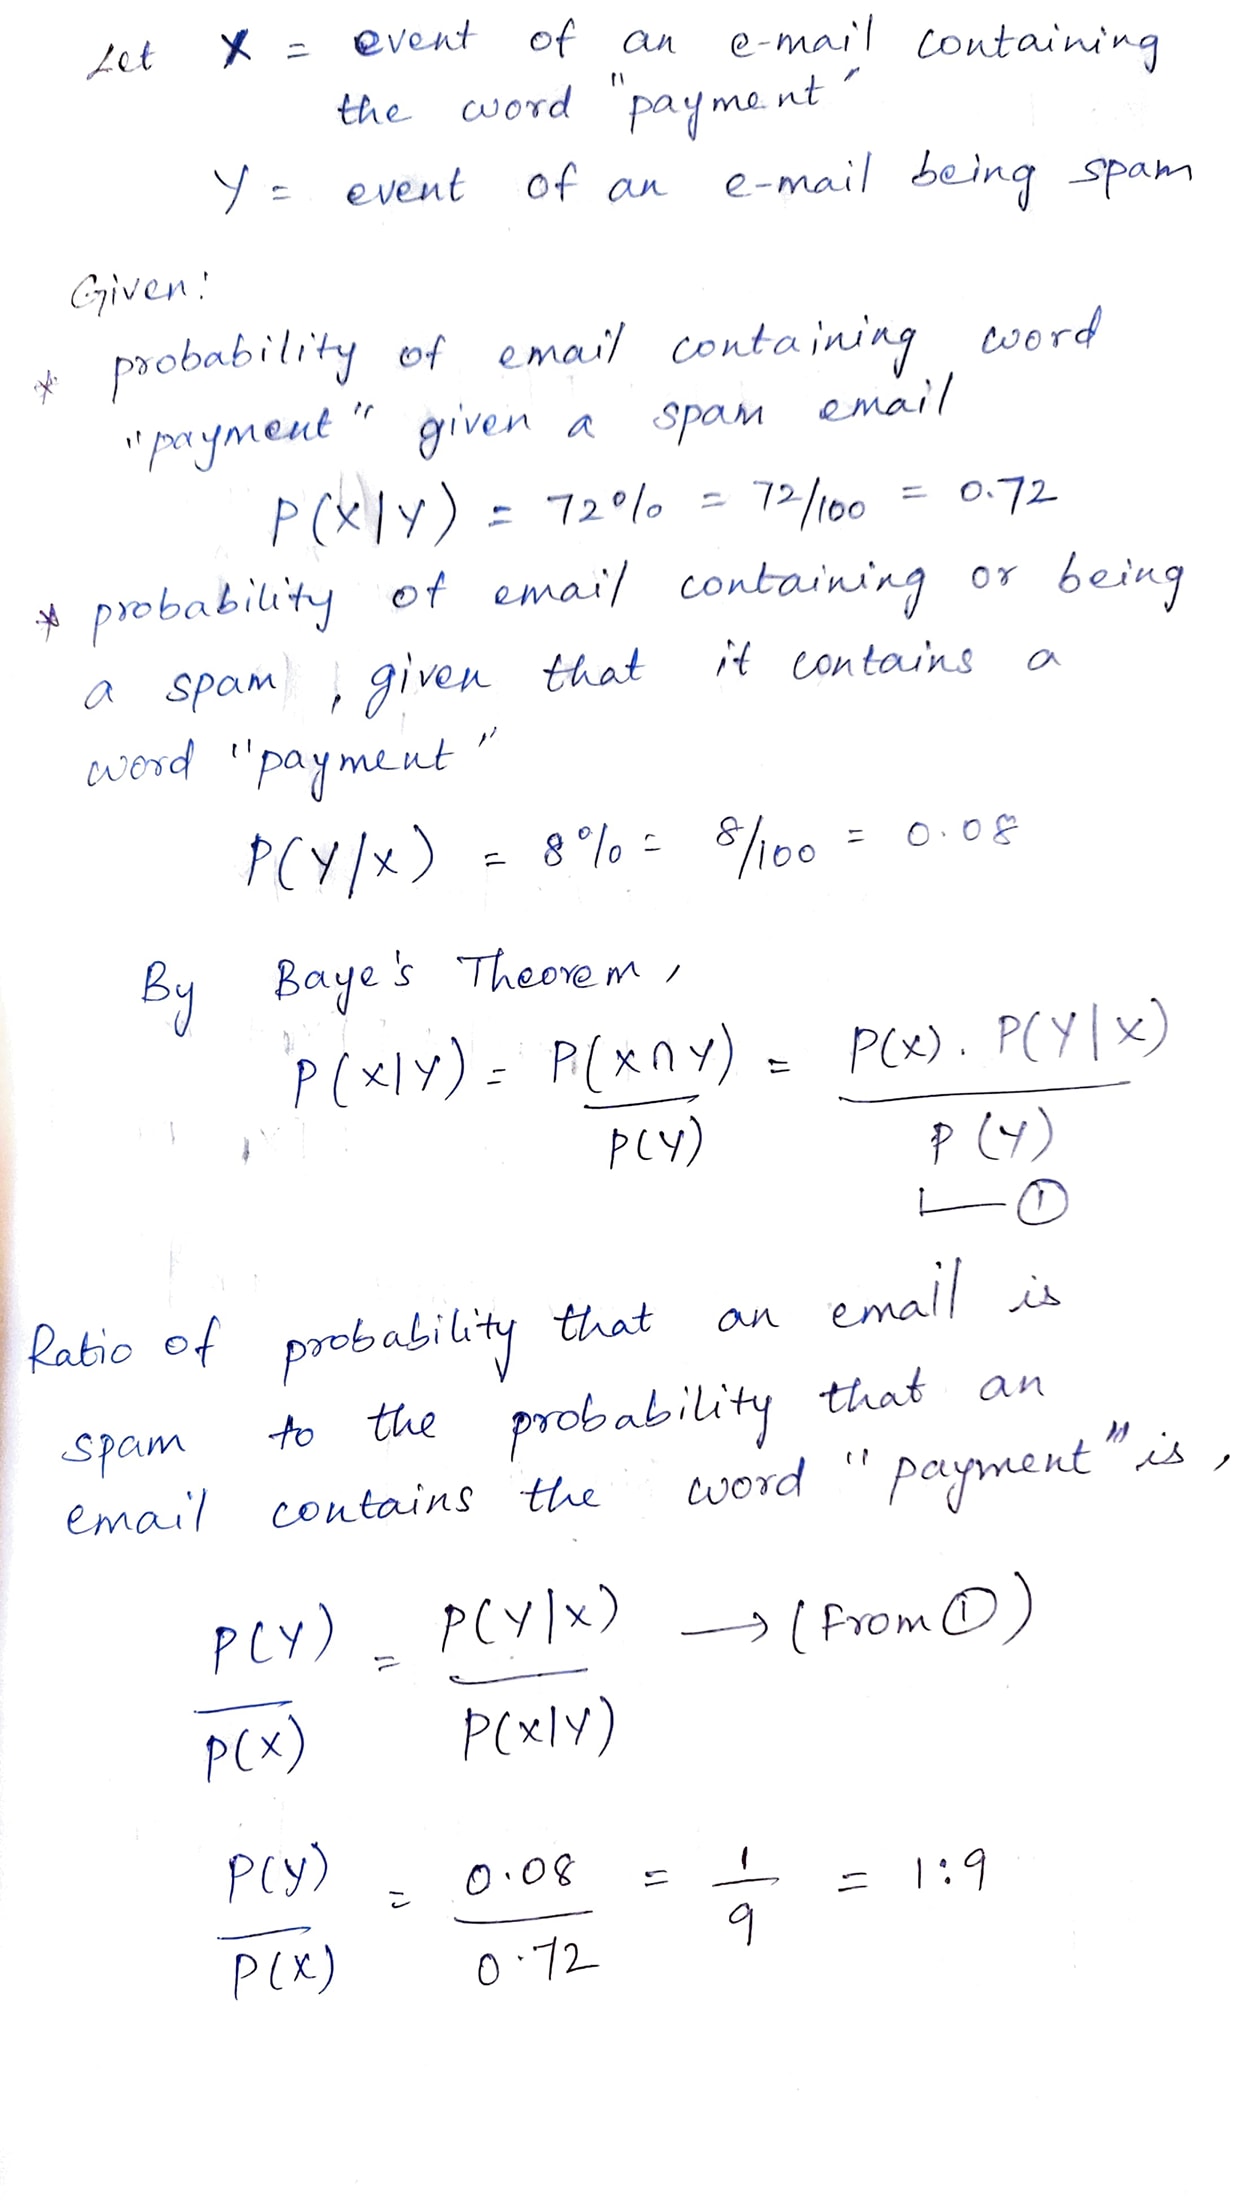 Let X = event of an e-mail containing
the word "payment"
Y = event of an e-mail being spam
Given:
* probability of email containing word
"payment" given a spam email
P(X|Y) = 72% = 72/100 = 0.72
* probability of email containing or being
a spam, given that it contains a
word "payment"
P(Y/X) = 8% = 8/100 = 0.08
By Baye's Theorem,
P(X|Y) = P(X∩Y) / P(Y) = P(X). P(Y|X) / P(Y)
①
Ratio of probability that an email is
spam to the probability that an
email contains the word "payment" is,
P(Y) / P(X) = P(Y|X) / P(X|Y) → (From ①)
P(Y) / P(X) = 0.08 / 0.72 = 1 / 9 = 1:9